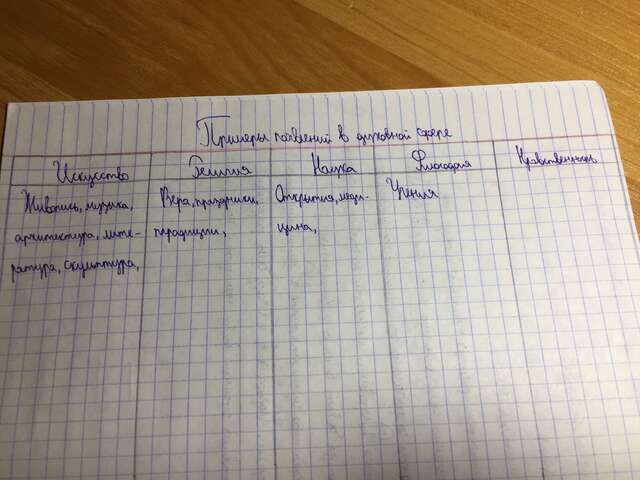 Примеры явлений в духовной сфере
Искусство Религия Наука Философия Нравственность
Живопись, музыка, Вера, праздники, Открытия, меди- Учения
архитектура, лите- традиции, цина,
ратура, скульптура,